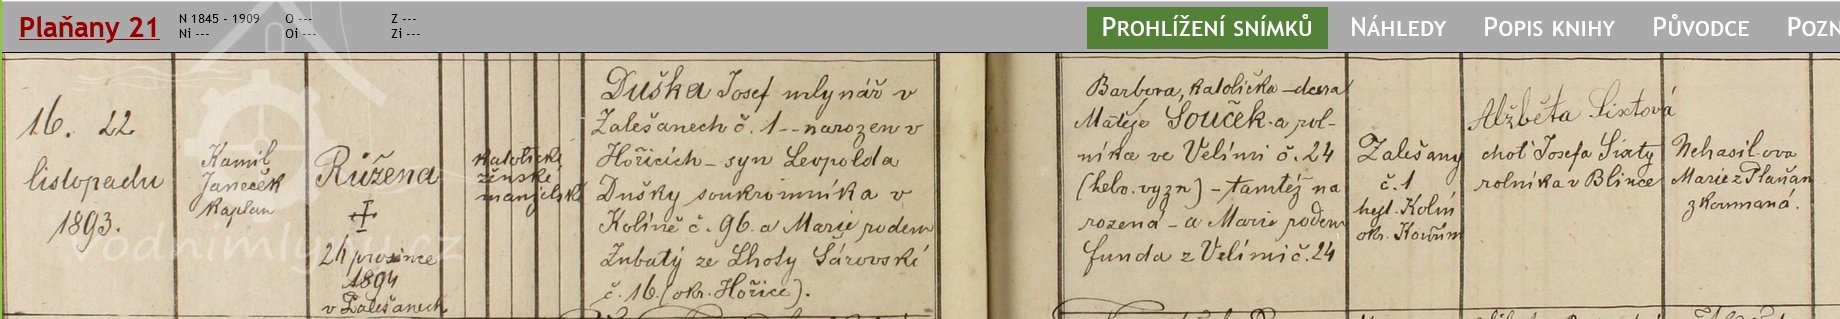 Plaňany 21
N 1845 - 1909 O --- Z ---
Ni --- Oi --- Zi ---
Prohlížení snímků Náhledy Popis knihy Průvodce Pozn
16. 22
listopadu
1893.
Kamil
Janeček
Kaplan
Růžena
24 prosince
1894
v Zalešanech
katolické
ženské
manželské
Duška Josef mlynář v
Zalešanech č. 1 -- narozen v
Hořicích - syn Leopolda
Dušky soukromníka v
Kolíně č. 96. a Marie rodem
Zubatý ze Lhoty Šárovské
č. 16. (okr. Hořice).
Barbora, katolička - dcera
Matěje Souček a rol-
níka ve Velimi č. 24
(helv. vyzn) - tamtéž na
rozená - a Marie rodem
Funda z Velimi č. 24
Zalešany
č. 1
hejt. Kolín
okr. Kouřim
Alžběta Sixtová
choť Josefa Sixty
rolníka v Blince
Nehasilova
Marie z Plaňan
zkoumaná.
vodnimlyny.cz